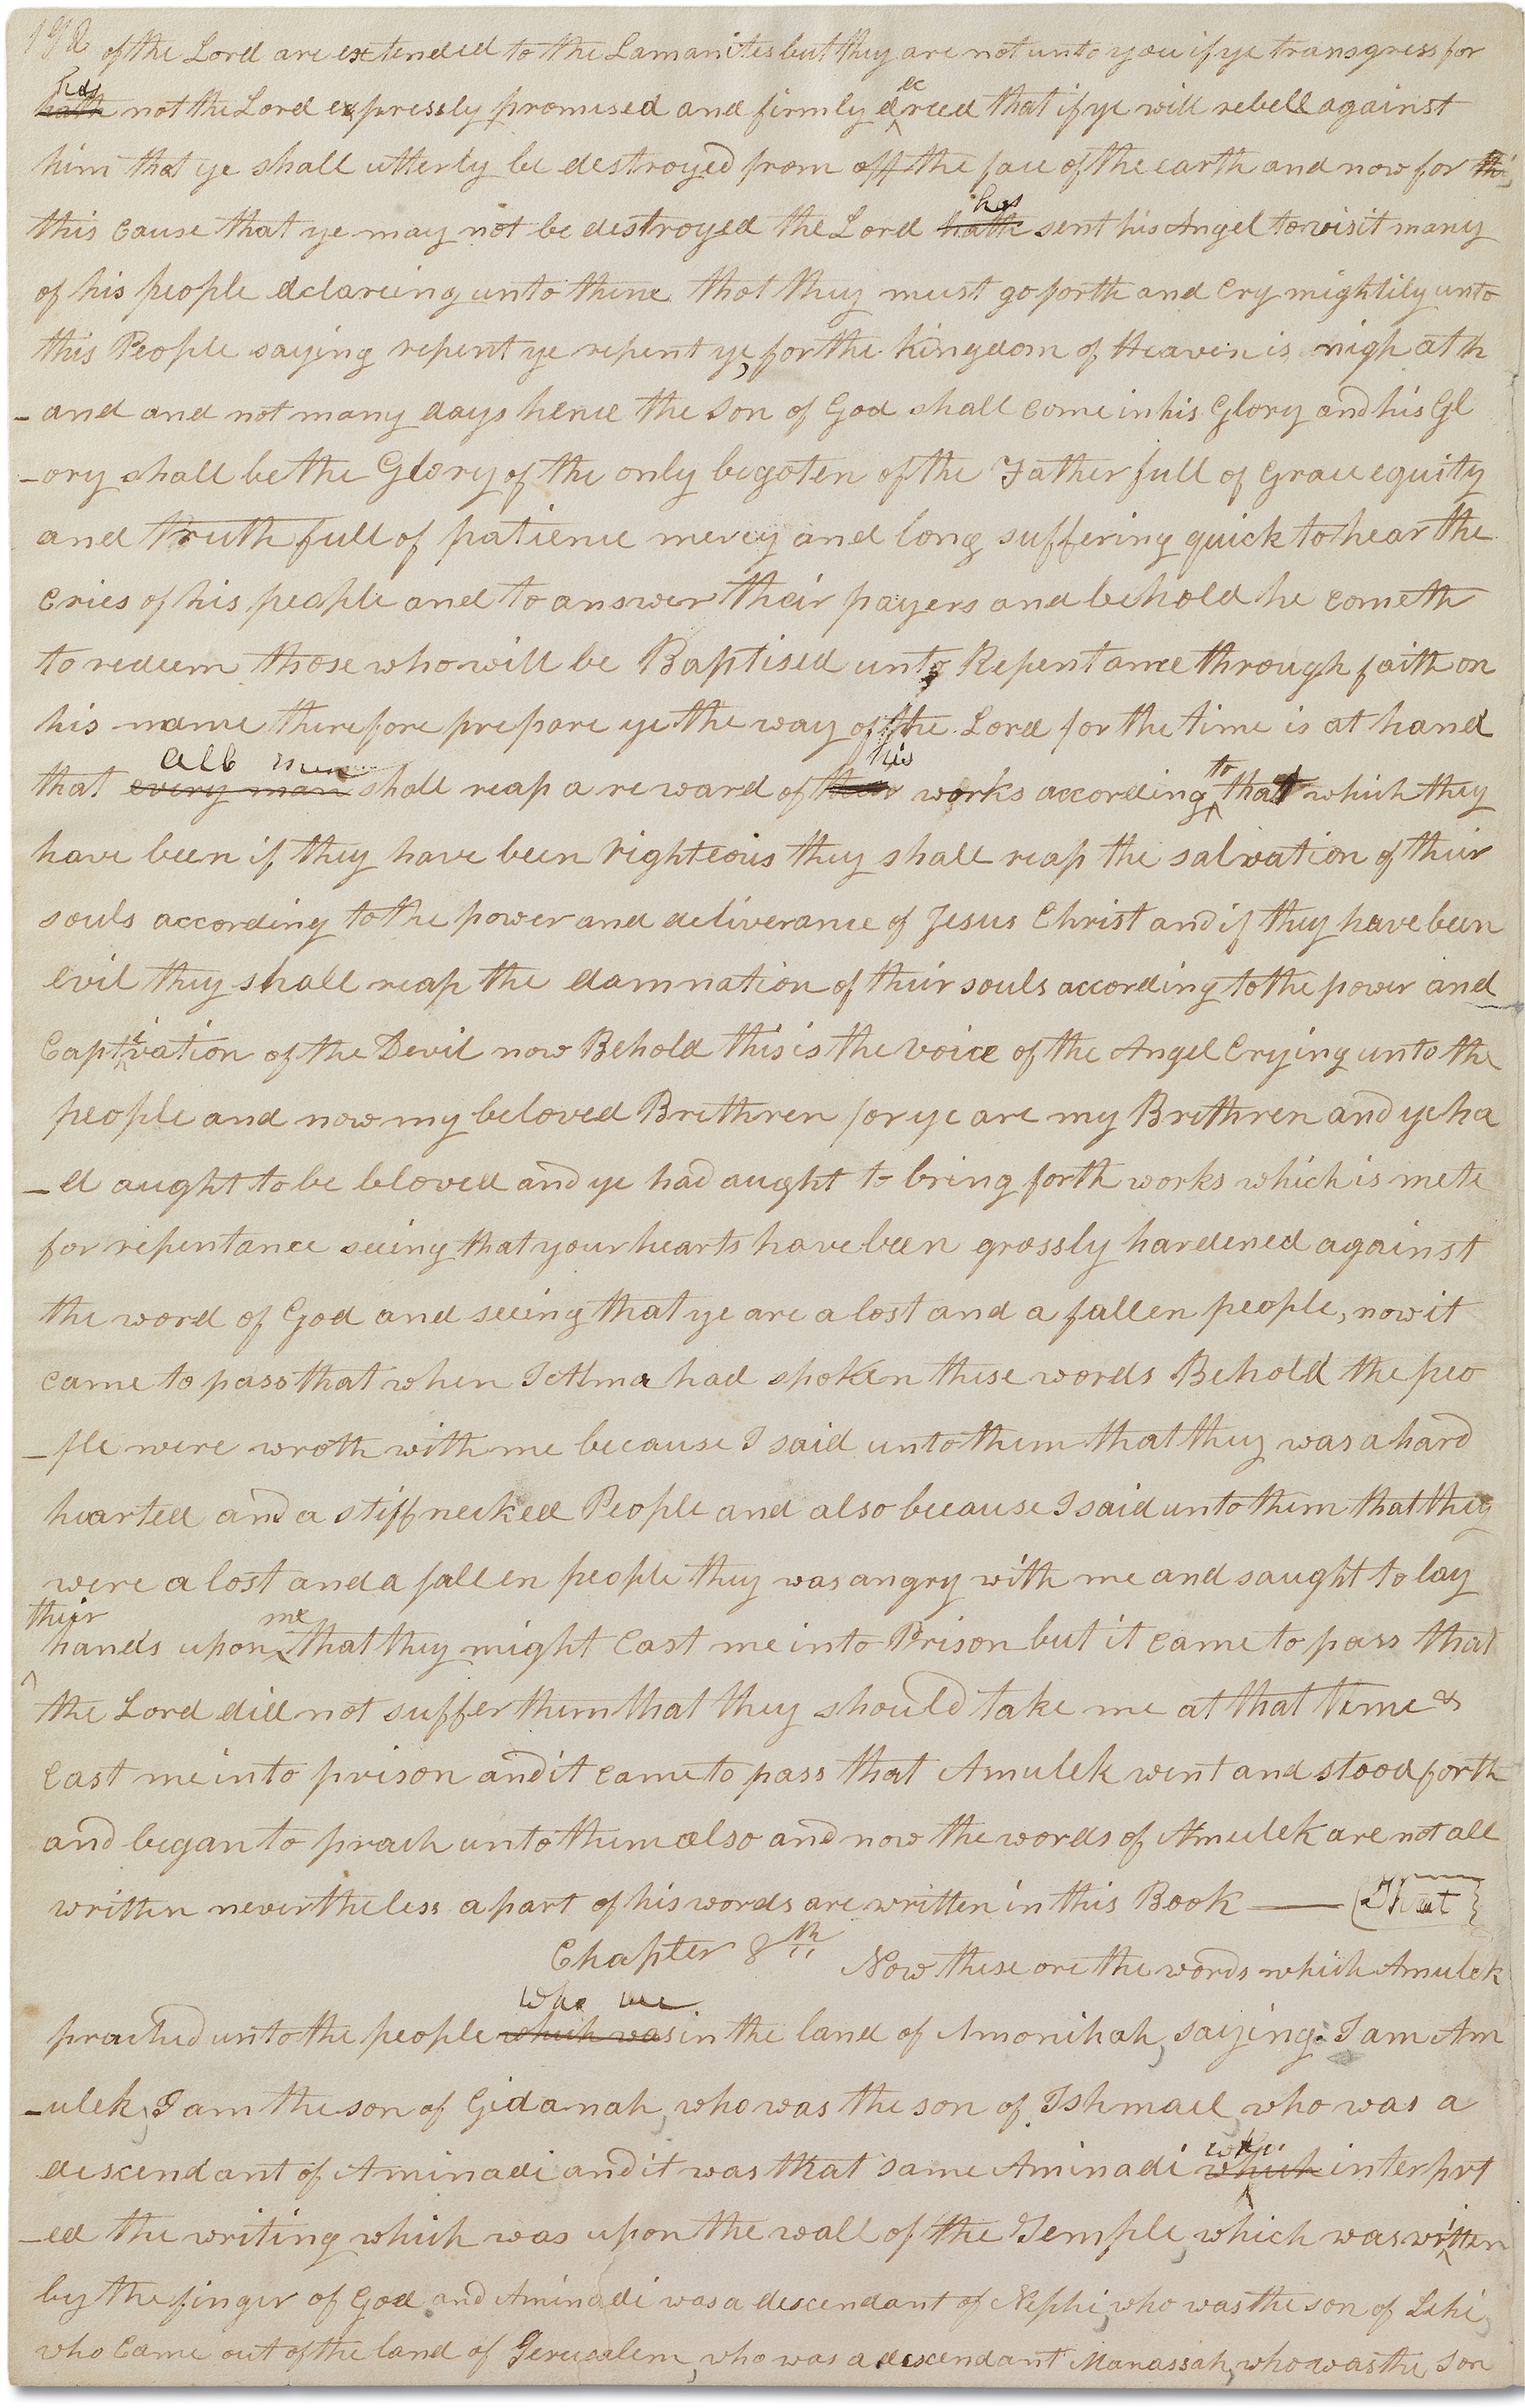 192 of the Lord are extended to the Lamanites but they are not unto you if ye transgress for
has
hath not the Lord expressly promised and firmly decreed that if ye will rebell against
him that ye shall utterly be destroyed from off the face of the earth and now for thi
this cause that ye may not be destroyed the Lord hath has sent his Angel to visit many
of his people declareing unto them that they must go forth and Cry mightily unto
this People saying repent ye repent ye, for the Kingdom of Heaven is nigh at h
-and and not many days hence the Son of God shall come in his Glory and his Gl
-ory shall be the Glory of the only begoten of the Father full of Grace equity
and Truth full of patience mercy and long suffering quick to hear the
cries of his people and to answer their payers and behold he cometh
to redeem those who will be Baptised unto Repentance through faith on
his name therefore prepare ye the way of the Lord for the time is at hand
all men his to
that every man shall reap a reward of their works according that which they
have been if they have been righteous they shall reap the salvation of their
souls according to the power and deliverance of Jesus Christ and if they have been
evil they shall reap the damnation of their souls according to the power and
Captivation of the Devil now Behold this is the voice of the Angel Crying unto the
people and now my beloved Brethren for ye are my Brethren and ye ha
-d aught to be beloved and ye had aught to bring forth works which is mete
for repentance seeing that your hearts have been grossly hardened against
the word of God and seeing that ye are a lost and a fallen people, now it
came to pass that when I Alma had spoken these words Behold the peo
-ple were wroth with me because I said unto them that they was a hard
hearted and a stiffnecked People and also because I said unto them that they
were a lost and a fallen people they was angry with me and saught to lay
their me
hands upon that they might cast me into Prison but it came to pass that
the Lord did not suffer them that they should take me at that time &
cast me into prison and it came to pass that Amulek went and stood forth
and began to preach unto them also and now the words of Amulek are not all
written nevertheless a part of his words are written in this Book —
Chapter 8th Now these are the words which Amulek
who were
preached unto the people which was in the land of Amonihah, saying. I am Am
-ulek, I am the son of Gidanah, who was the son of Ishmael, who was a
who
descendant of Aminadi and it was that same Aminadi which interpret
-ed the writing which was upon the wall of the Temple, which was written
by the finger of God and Aminadi was a descendant of Nephi, who was the son of Lehi,
who came out of the land of Jerusalem, who was a descendant Manassah, who was the Son